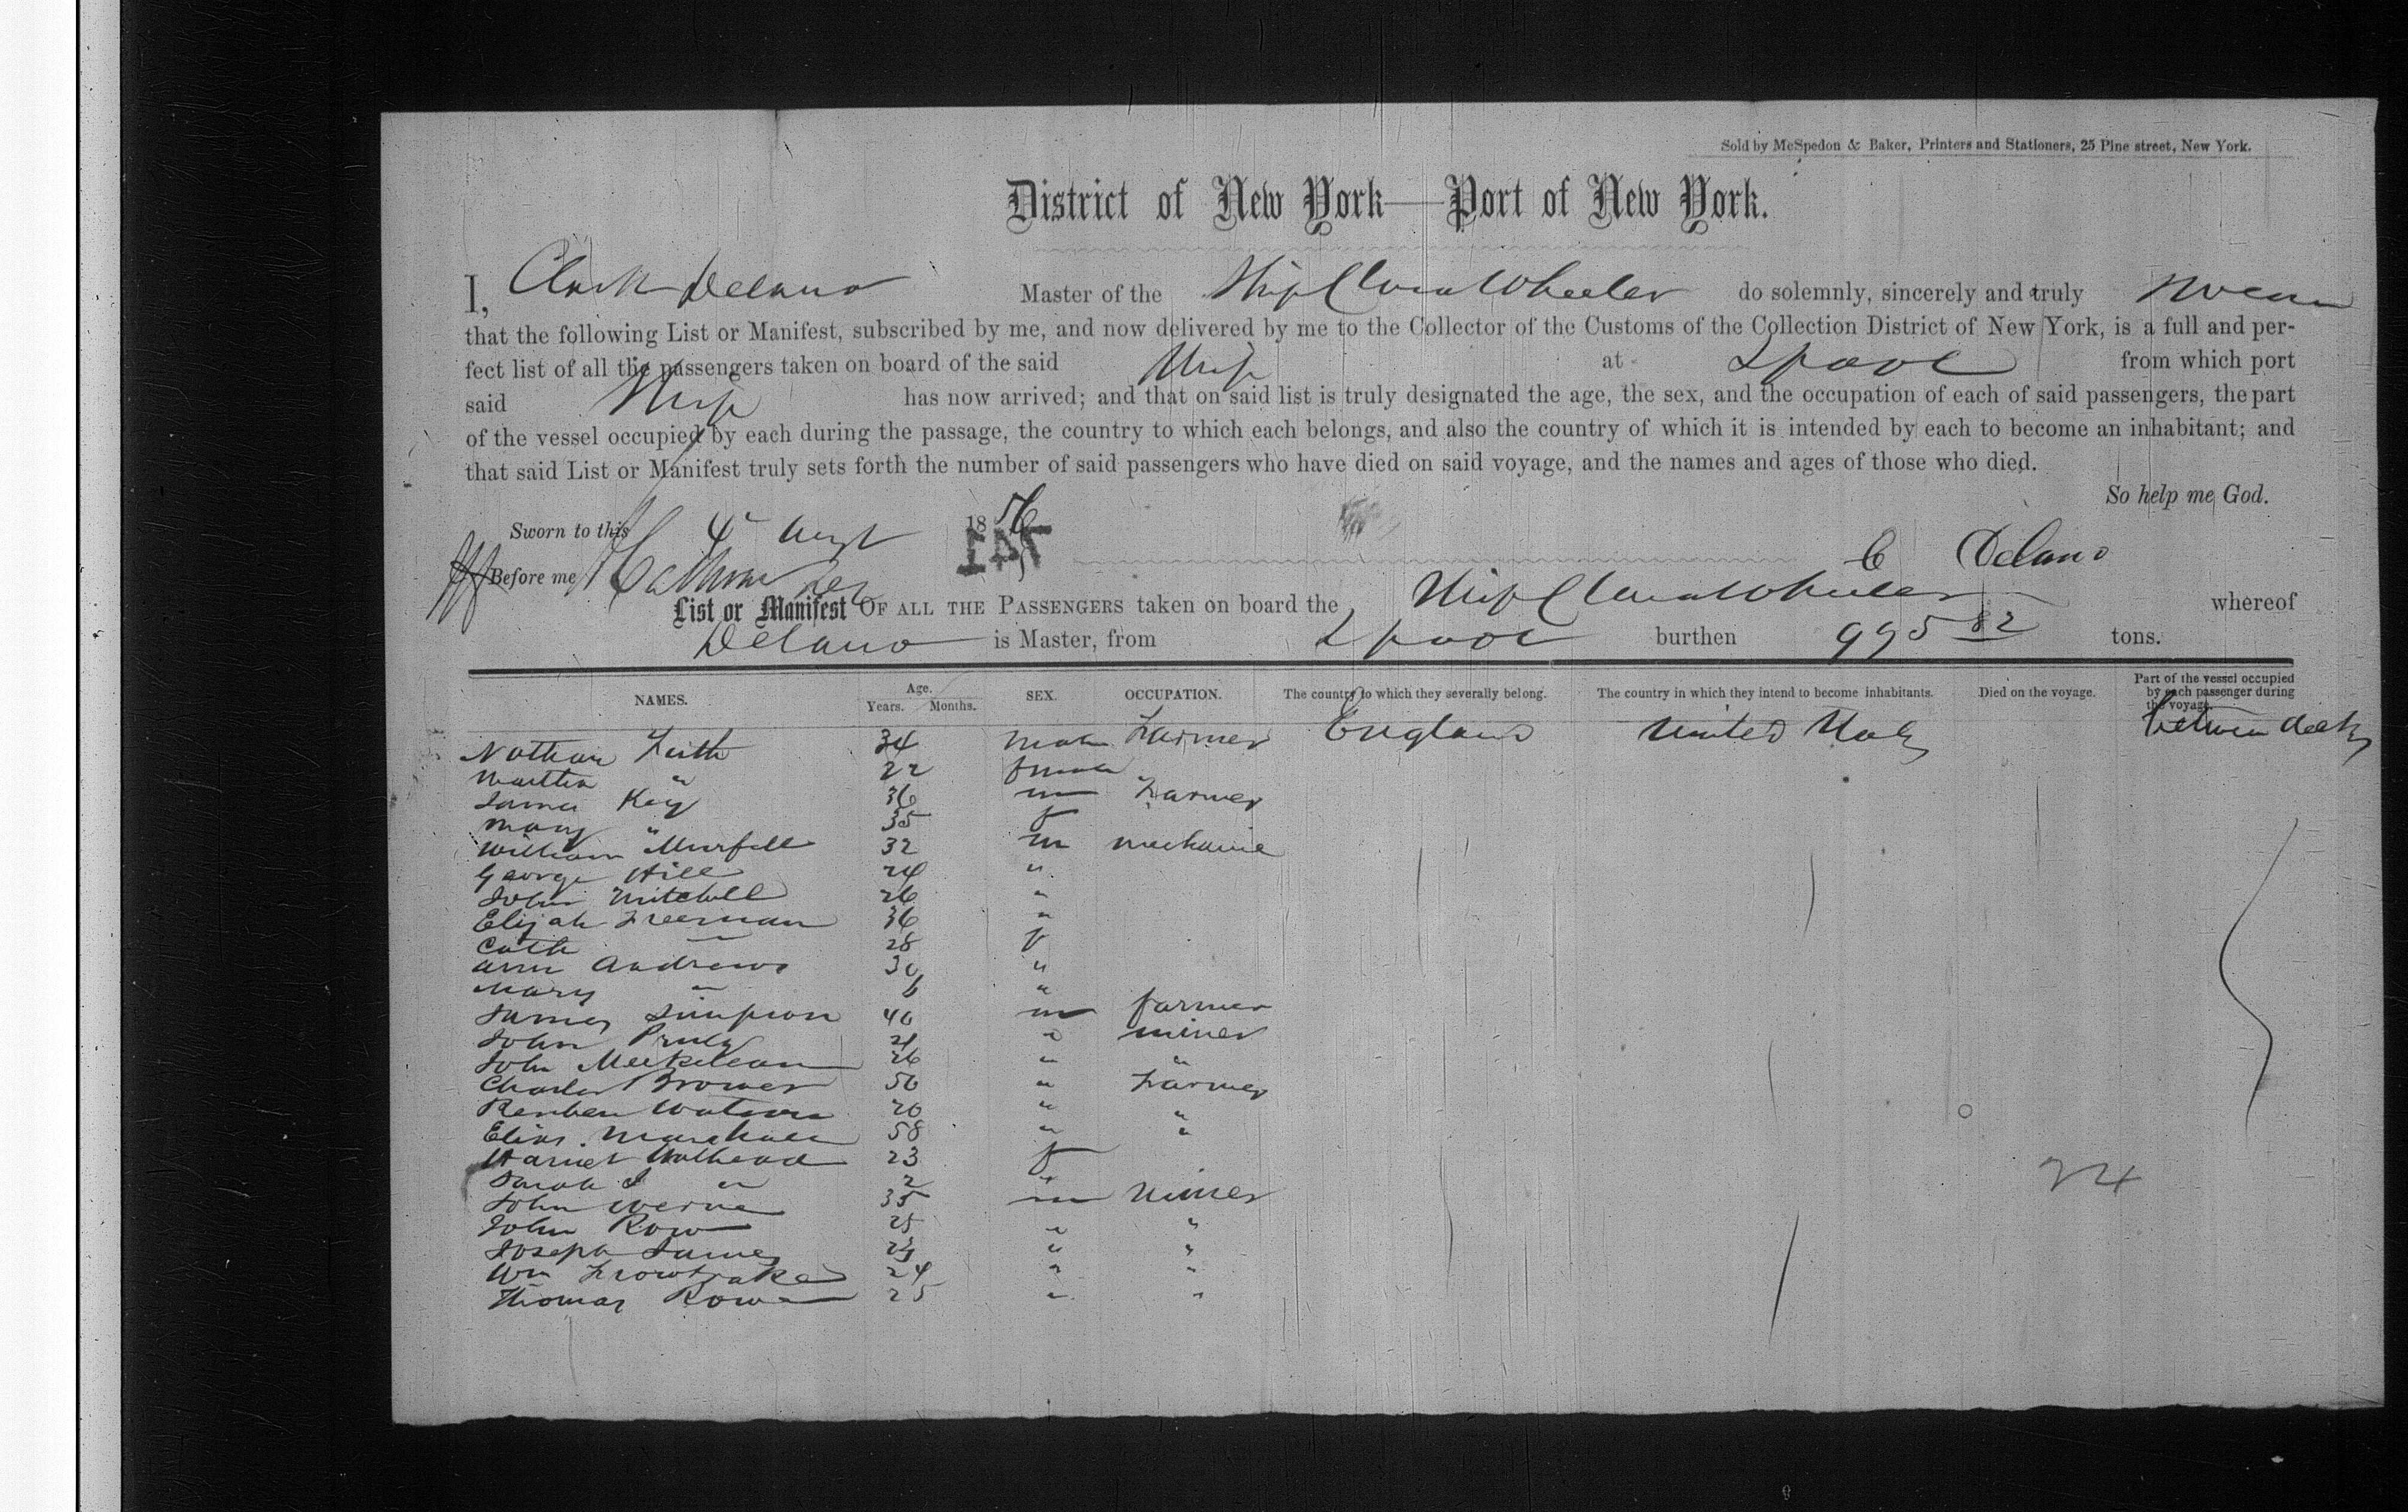 Sold by McSpedon & Baker, Printers and Stationers, 25 Pine street, New York.
District of New York—Port of New York.
I, Clark Delano Master of the Ship Clara Wheeler do solemnly, sincerely and truly swear
that the following List or Manifest, subscribed by me, and now delivered by me to the Collector of the Customs of the Collection District of New York, is a full and per-
fect list of all the passengers taken on board of the said Ship at Lpool from which port
said Ship has now arrived; and that on said list is truly designated the age, the sex, and the occupation of each of said passengers, the part
of the vessel occupied by each during the passage, the country to which each belongs, and also the country of which it is intended by each to become an inhabitant; and
that said List or Manifest truly sets forth the number of said passengers who have died on said voyage, and the names and ages of those who died.
So help me God.
Sworn to this 4 Augt 1856
741
Before me
C Delano
List or Manifest OF ALL THE PASSENGERS taken on board the Ship Clara Wheeler whereof
Delano is Master, from Lpool burthen 995 82 tons.
NAMES. Age. Years. Months. SEX. OCCUPATION. The country to which they severally belong. The country in which they intend to become inhabitants. Died on the voyage. Part of the vessel occupied by each passenger during the voyage.
Nathan 34 male Farmer England United States between decks
Martha " 22 female
James Key 36 m Farmer
Mary " 35 f
William 32 m mechanic
George Hill 24 "
John Mitchell 26 "
Elijah Freeman 36 "
Cath — 28 f
Ann Andrews 30 "
Mary " 6 "
James Simpson 40 m farmer
John 21 " miner
John 26 " "
Charles Brower 50 " Farmer
Reuben Watson 20 " "
Elias Marshall 58 " "
Harriet 23 f
Sarah " 2 "
John 35 m Miner
John Row 25 " "
Joseph James " "
Wm 24 " "
Thomas Rowe 25 " "
24